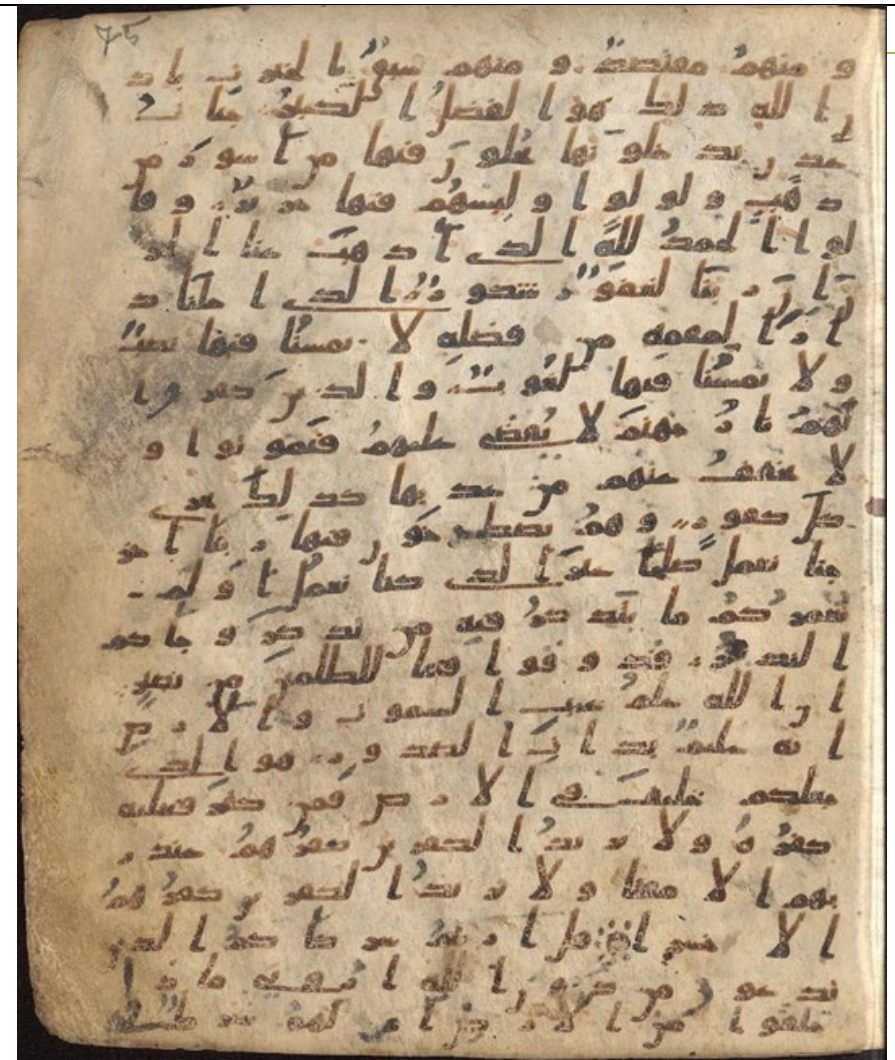 75
و منهم مقتصد و منهم سبق بالخيرت باذ
ن الله ذلك هو الفضل الكبير جنات
عدن يدخلونها يحلون فيها من اسور من
ذهب و لولوا و لبسهم فيها حرير و قا
لوا الحمد لله الذي اذهب عنا الحز
ن ان ربنا لغفور شكور الذي احلنا د
ار المقمه من فضله لا يمسنا فيها نصب
و لا يمسنا فيها لغوب و الذين كفروا
لهم نار جهنم لا يقضى عليهم فيموتوا و
لا يخفف عنهم من عذبها كذلك نجزي
كل كفور و هم يصطرخون فيها ربنا اخر
جنا نعمل صلحا غير الذي كنا نعمل او لم
نعمركم ما يتذكر فيه من تذكر و جاكم
النذير فذوقوا فما للظلمين من نصير
ان الله علم غيب السموت و الارض
انه عليم بذات الصدور هو الذي
جعلكم خليف في الارض فمن كفر فعليه
كفره و لا يزيد الكفرين كفرهم عند ر
بهم الا مقتا و لا يزيد الكفرين كفرهم
الا خسرا قل اريتم شركاكم الذين
تدعون من دون الله اروني ماذا
خلقوا من الارض ام لهم شرك في